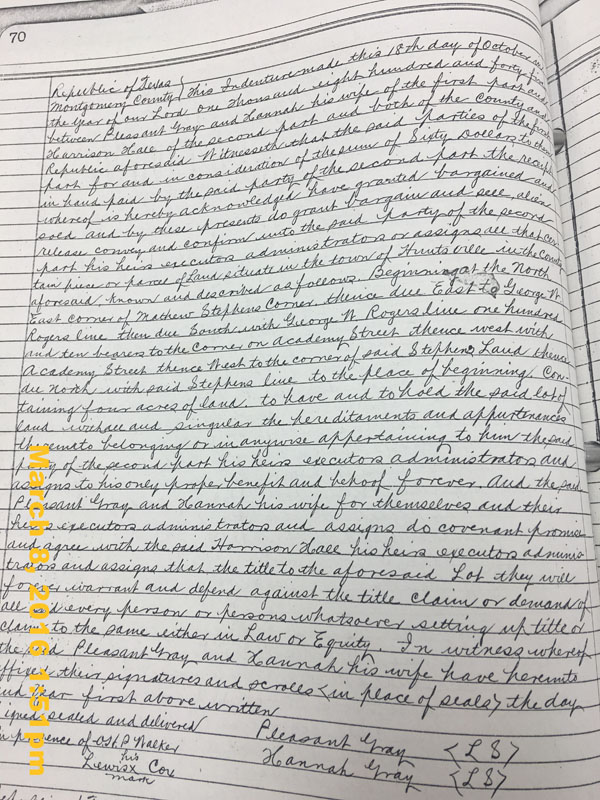 70
Republic of Texas
Montgomery County } This Indenture made this 18th day of October in
the year of our Lord one thousand eight hundred and forty five
between Pleasant Gray and Hannah his wife of the first part and
Harrison Hall of the second part and both of the County and
Republic aforesaid Witnesseth that the said parties of the first
part for and in consideration of the sum of Sixty Dollars to them
in hand paid by the said party of the second part the receipt
whereof is hereby acknowledged have granted bargained and
sold and by these presents do grant bargain and sell, alien
release convey and confirm unto the said party of the second
part his heirs executors administrators or assigns all that cer
tain piece or parcel of Land situate in the town of Huntsville in the county
aforesaid known and described as follows. Beginning at the North
East corner of Mathew Stephens Corner thence due East to George W
Rogers line then due South with George W Rogers line one hundred
and ten bearers to the Corner on Academy Street thence west with
Academy Street thence West to the corner of said Stephens Land thence
due north with said Stephens line to the place of beginning Con-
taining four acres of land. to have and to hold the said lot of
land with all and singular the hereditaments and appurtenances
thereunto belonging or in anywise appertaining to him the said
party of the second part his heirs executors administrators and
assigns to his only proper benefit and behoof forever. And the said
Pleasant Gray and Hannah his wife for themselves and their
heirs executors administrators and assigns do covenant promise
and agree with the said Harrison Hall his heirs executors adminis
trators and assigns that the title to the aforesaid Lot they will
forever warrant and defend against the title claim or demand of
all and every person or persons whatsoever setting up title or
claim to the same either in Law or Equity In witness whereof
the said Pleasant Gray and Hannah his wife have hereunto
affixed their signatures and scrolls (in place of seals) the day
and year first above written
signed sealed and delivered Pleasant Gray <L S>
in presence of Walker Hannah Gray <L S>
his
Lewis x Cox
mark
March 8, 2016 1:51pm